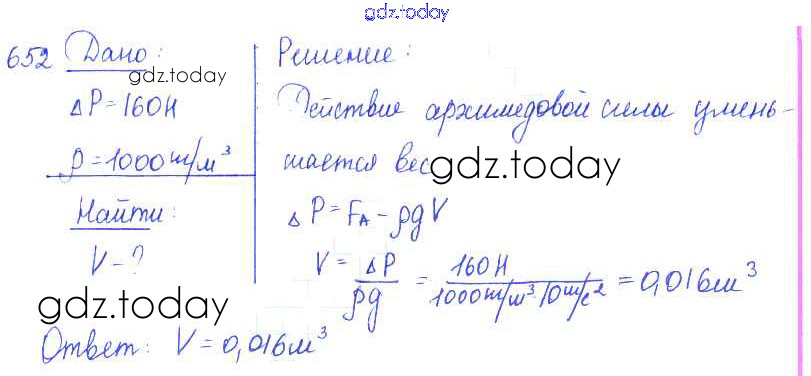 gdz.today
652 Дано:
gdz.today
ΔP=160Н
ρ=1000т/м³
Найти:
V-?
gdz.today
Решение:
Действие архимедовой силы умень-
шается вес
gdz.today
ΔP=FA-ρgV
V= ΔP/ρg = 160Н/1000т/м³·10т/с² =0,016м³
Ответ: V=0,016м³